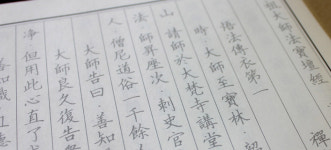 祖大師法寶壇經
悟法傳衣第一
時.大師至寶林.韶
山.請師於大梵寺講堂
法師昇座次.刺史官
人.僧尼道俗一千餘
大師告曰.善知
大師良久復告眾
淨但用此心直了成
善知識